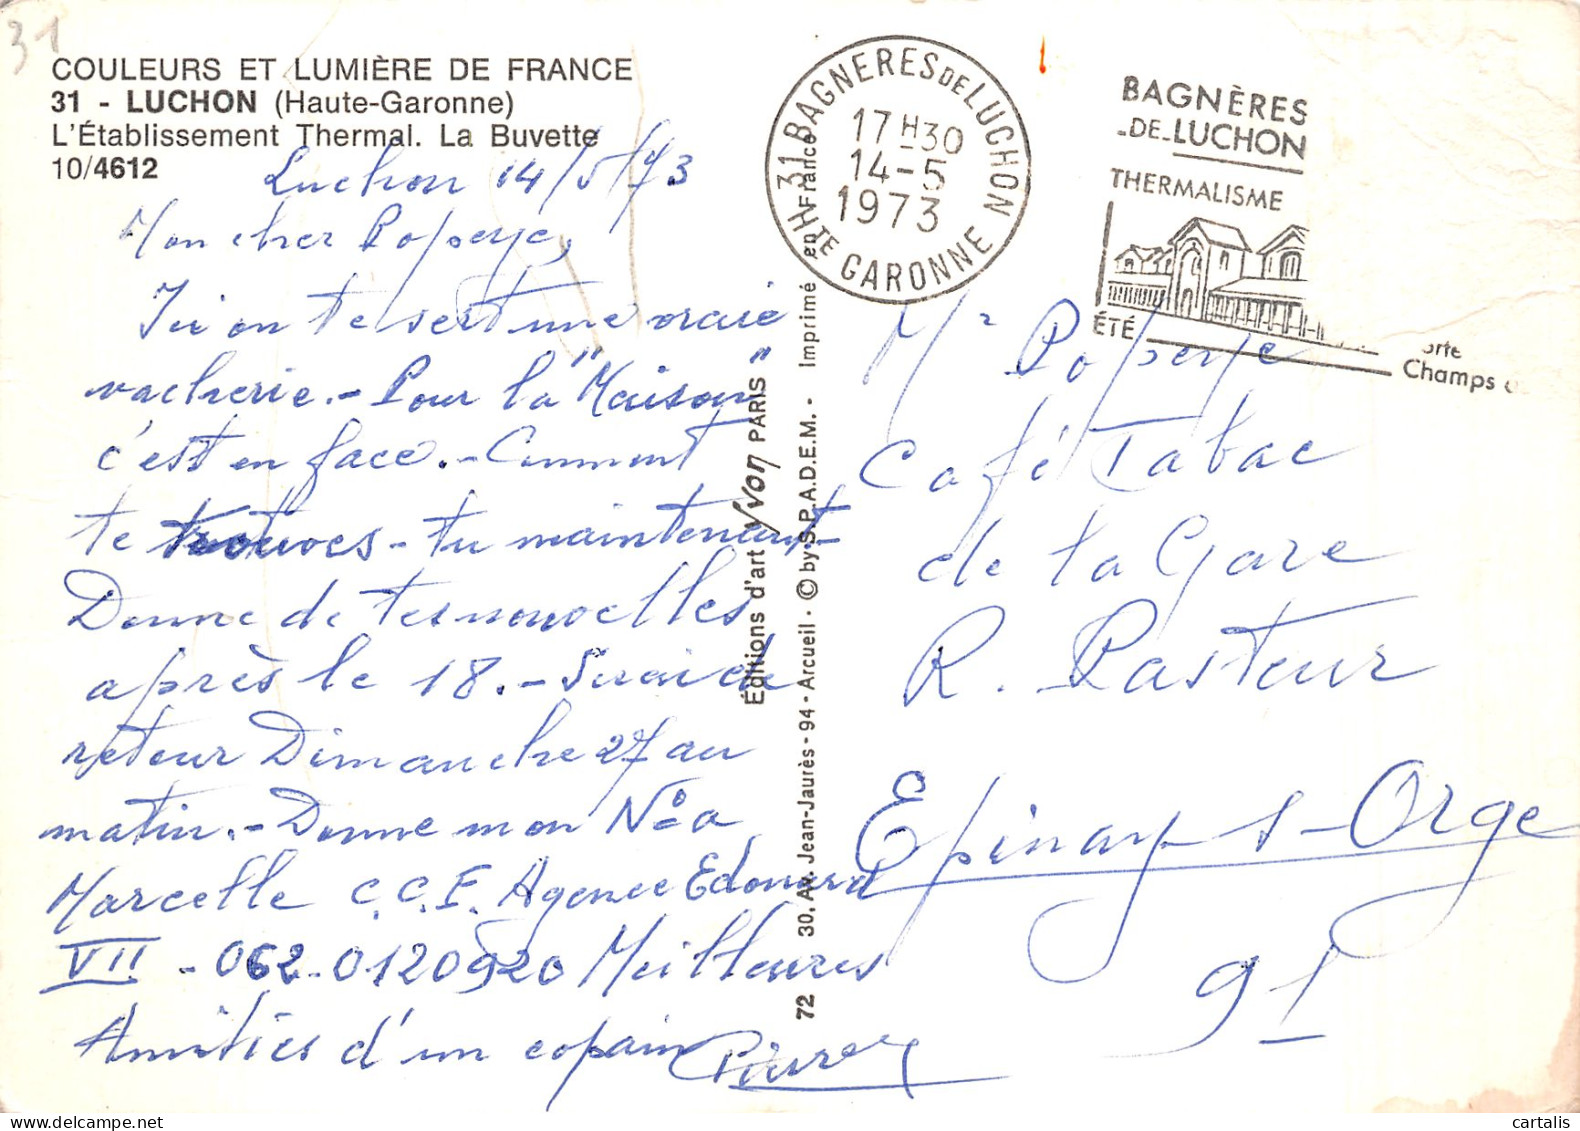 31
COULEURS ET LUMIÈRE DE FRANCE
31 - LUCHON (Haute-Garonne)
L'Établissement Thermal. La Buvette
10/4612
Luchon 14/5/73
Mon cher Popeye,
Ici on te sert une vraie
vacherie.- Pour la "Maison"
c'est en face.- Comment
te trouves-tu maintenant-
Donne de tes nouvelles
après le 18.- Serai de
retour Dimanche 27 au
matin.- Donne mon N° a
Marcelle C.C.F. Agence Edouard
VII - 062-0120920 Meilleures
Amitiés d'un copain
Pierre
Éditions d'art Yvon PARIS
72 30, Av. Jean-Jaurès - 94 - Arcueil - © by S.P.A.D.E.M. - Imprimé en France
31 BAGNERES DE LUCHON
17H30
14-5
1973
HTE GARONNE
BAGNÈRES
-DE-LUCHON
THERMALISME
ÉTÉ
orte
Champs
Mr Popeye
Café Tabac
de la Gare
R. Pasteur
Epinay s-Orge
91
cartalis